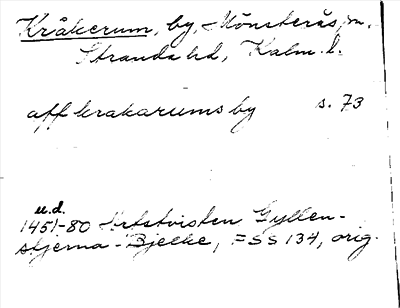 Kråkerum, by, Mönsterås sn.
Stranda hd, Kalm. l.
aff krakarums by s. 73
u.d.
1451-80 Arfstvisten Gyllen-
stjerna - Bjelke, FSS 134, orig.